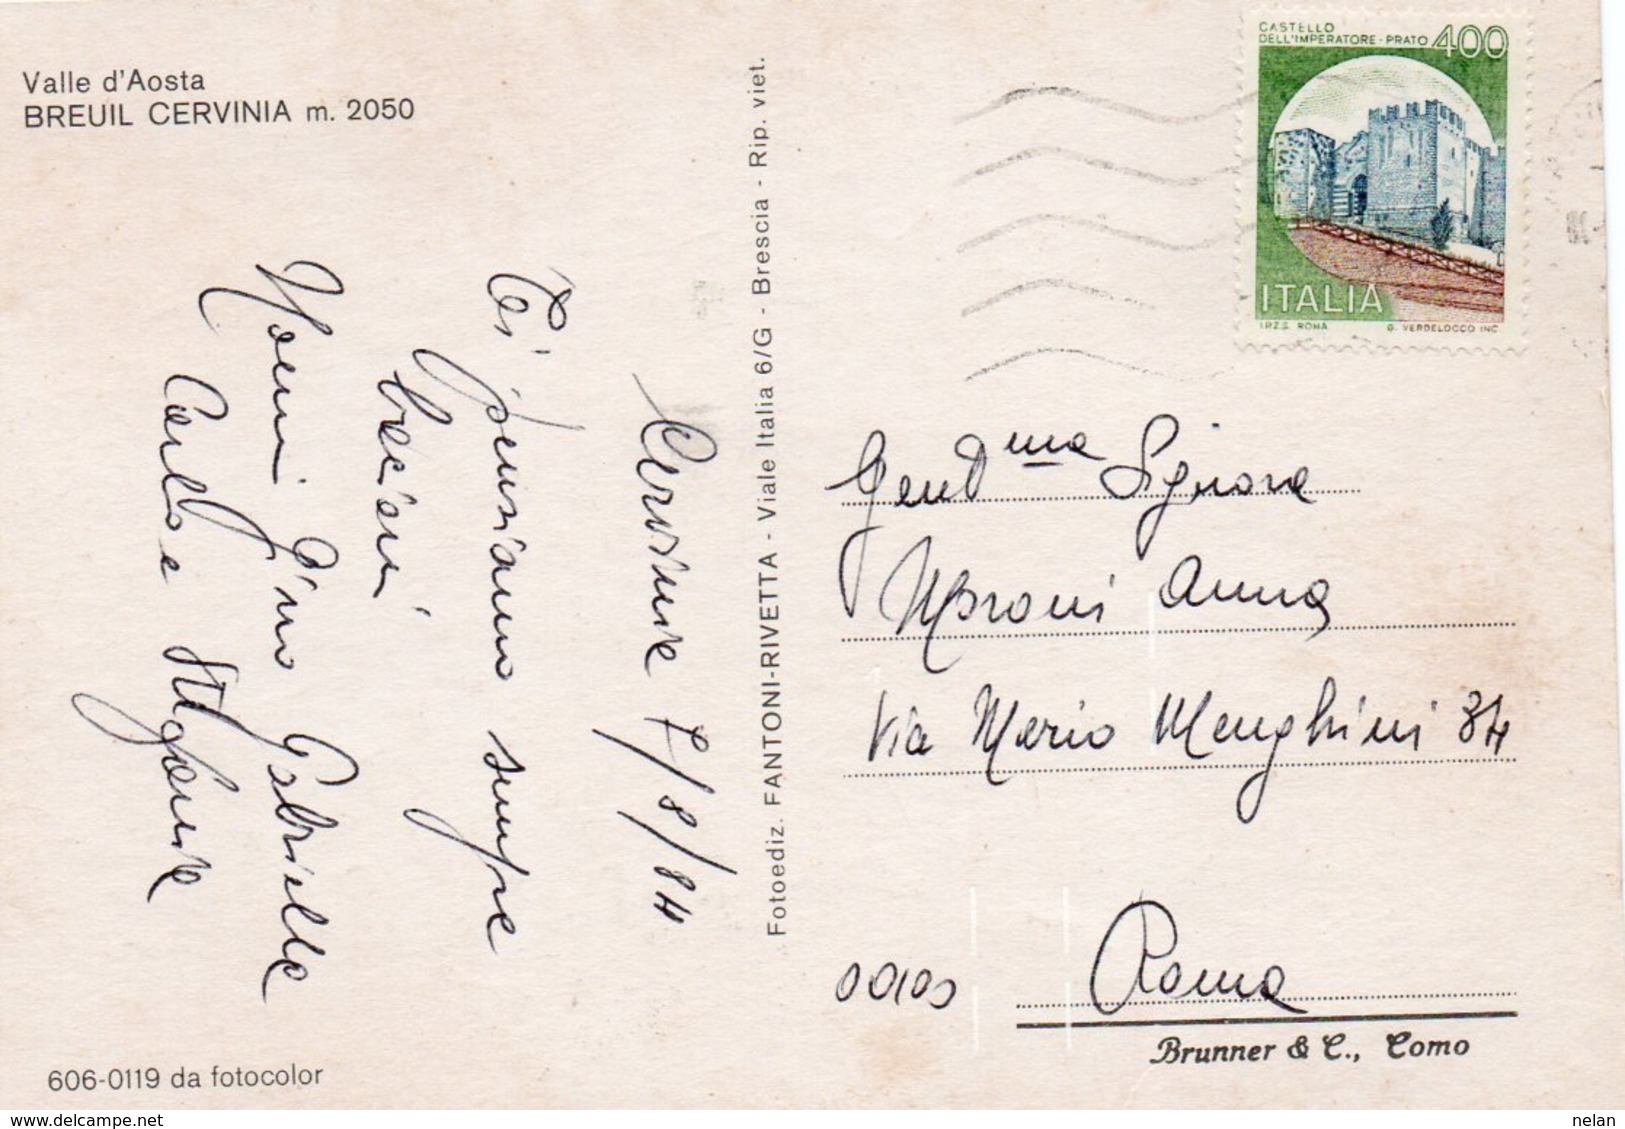 Valle d'Aosta
BREUIL CERVINIA m. 2050
CASTELLO
DELL'IMPERATORE - PRATO 400
ITALIA
I.P.Z.S. ROMA G. VERDELOCCO INC.
Fotoediz. FANTONI-RIVETTA - Viale Italia 6/G - Brescia - Rip. viet.
Cervinia 7/8/84
Ti pensiamo sempre
bacioni
Gino Gabriella
Carlo e Stefania
Gent.ma Signora
Moroni Anna
Via Mario Menghini 84
00100 Roma
Brunner & C., Como
606-0119 da fotocolor
nelan